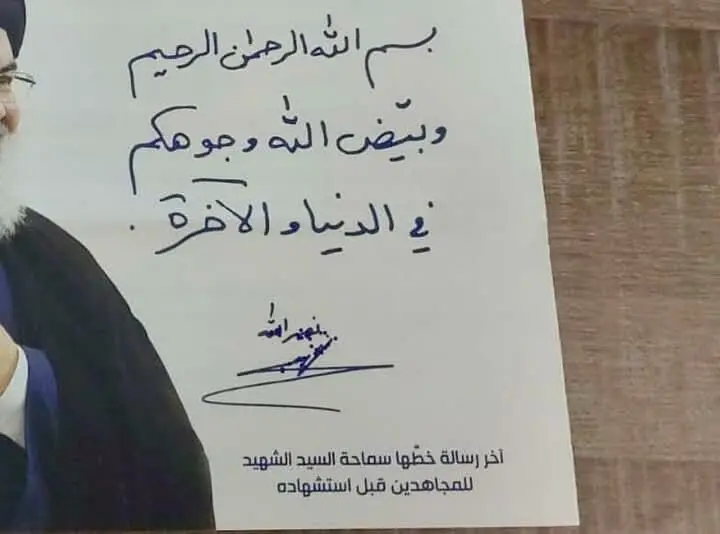 بسم الله الرحمٰن الرحيم
وبيّض الله وجوهكم
في الدنيا والآخرة.
نصر الله
آخر رسالة خطّها سماحة السيد الشهيد
للمجاهدين قبل استشهاده